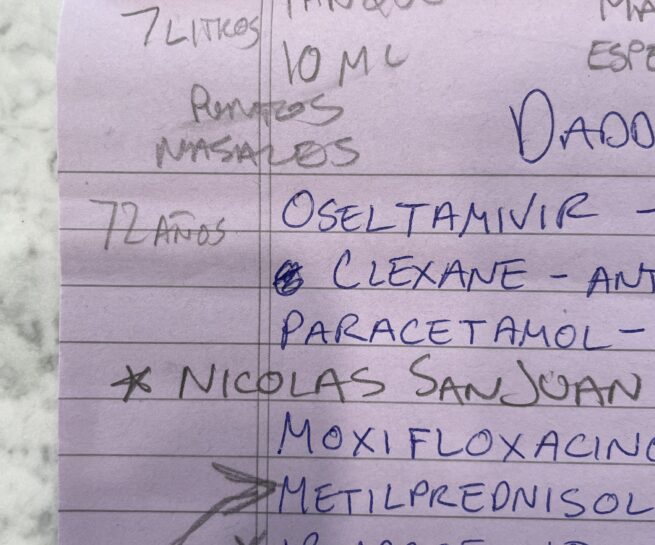 7 LITROS
10 ML
ESPE
NASALES
DADO
72 AÑOS
OSELTAMIVIR -
CLEXANE - ANT
PARACETAMOL -
* NICOLAS SANJUAN
MOXIFLOXACINO
METILPREDNISOL